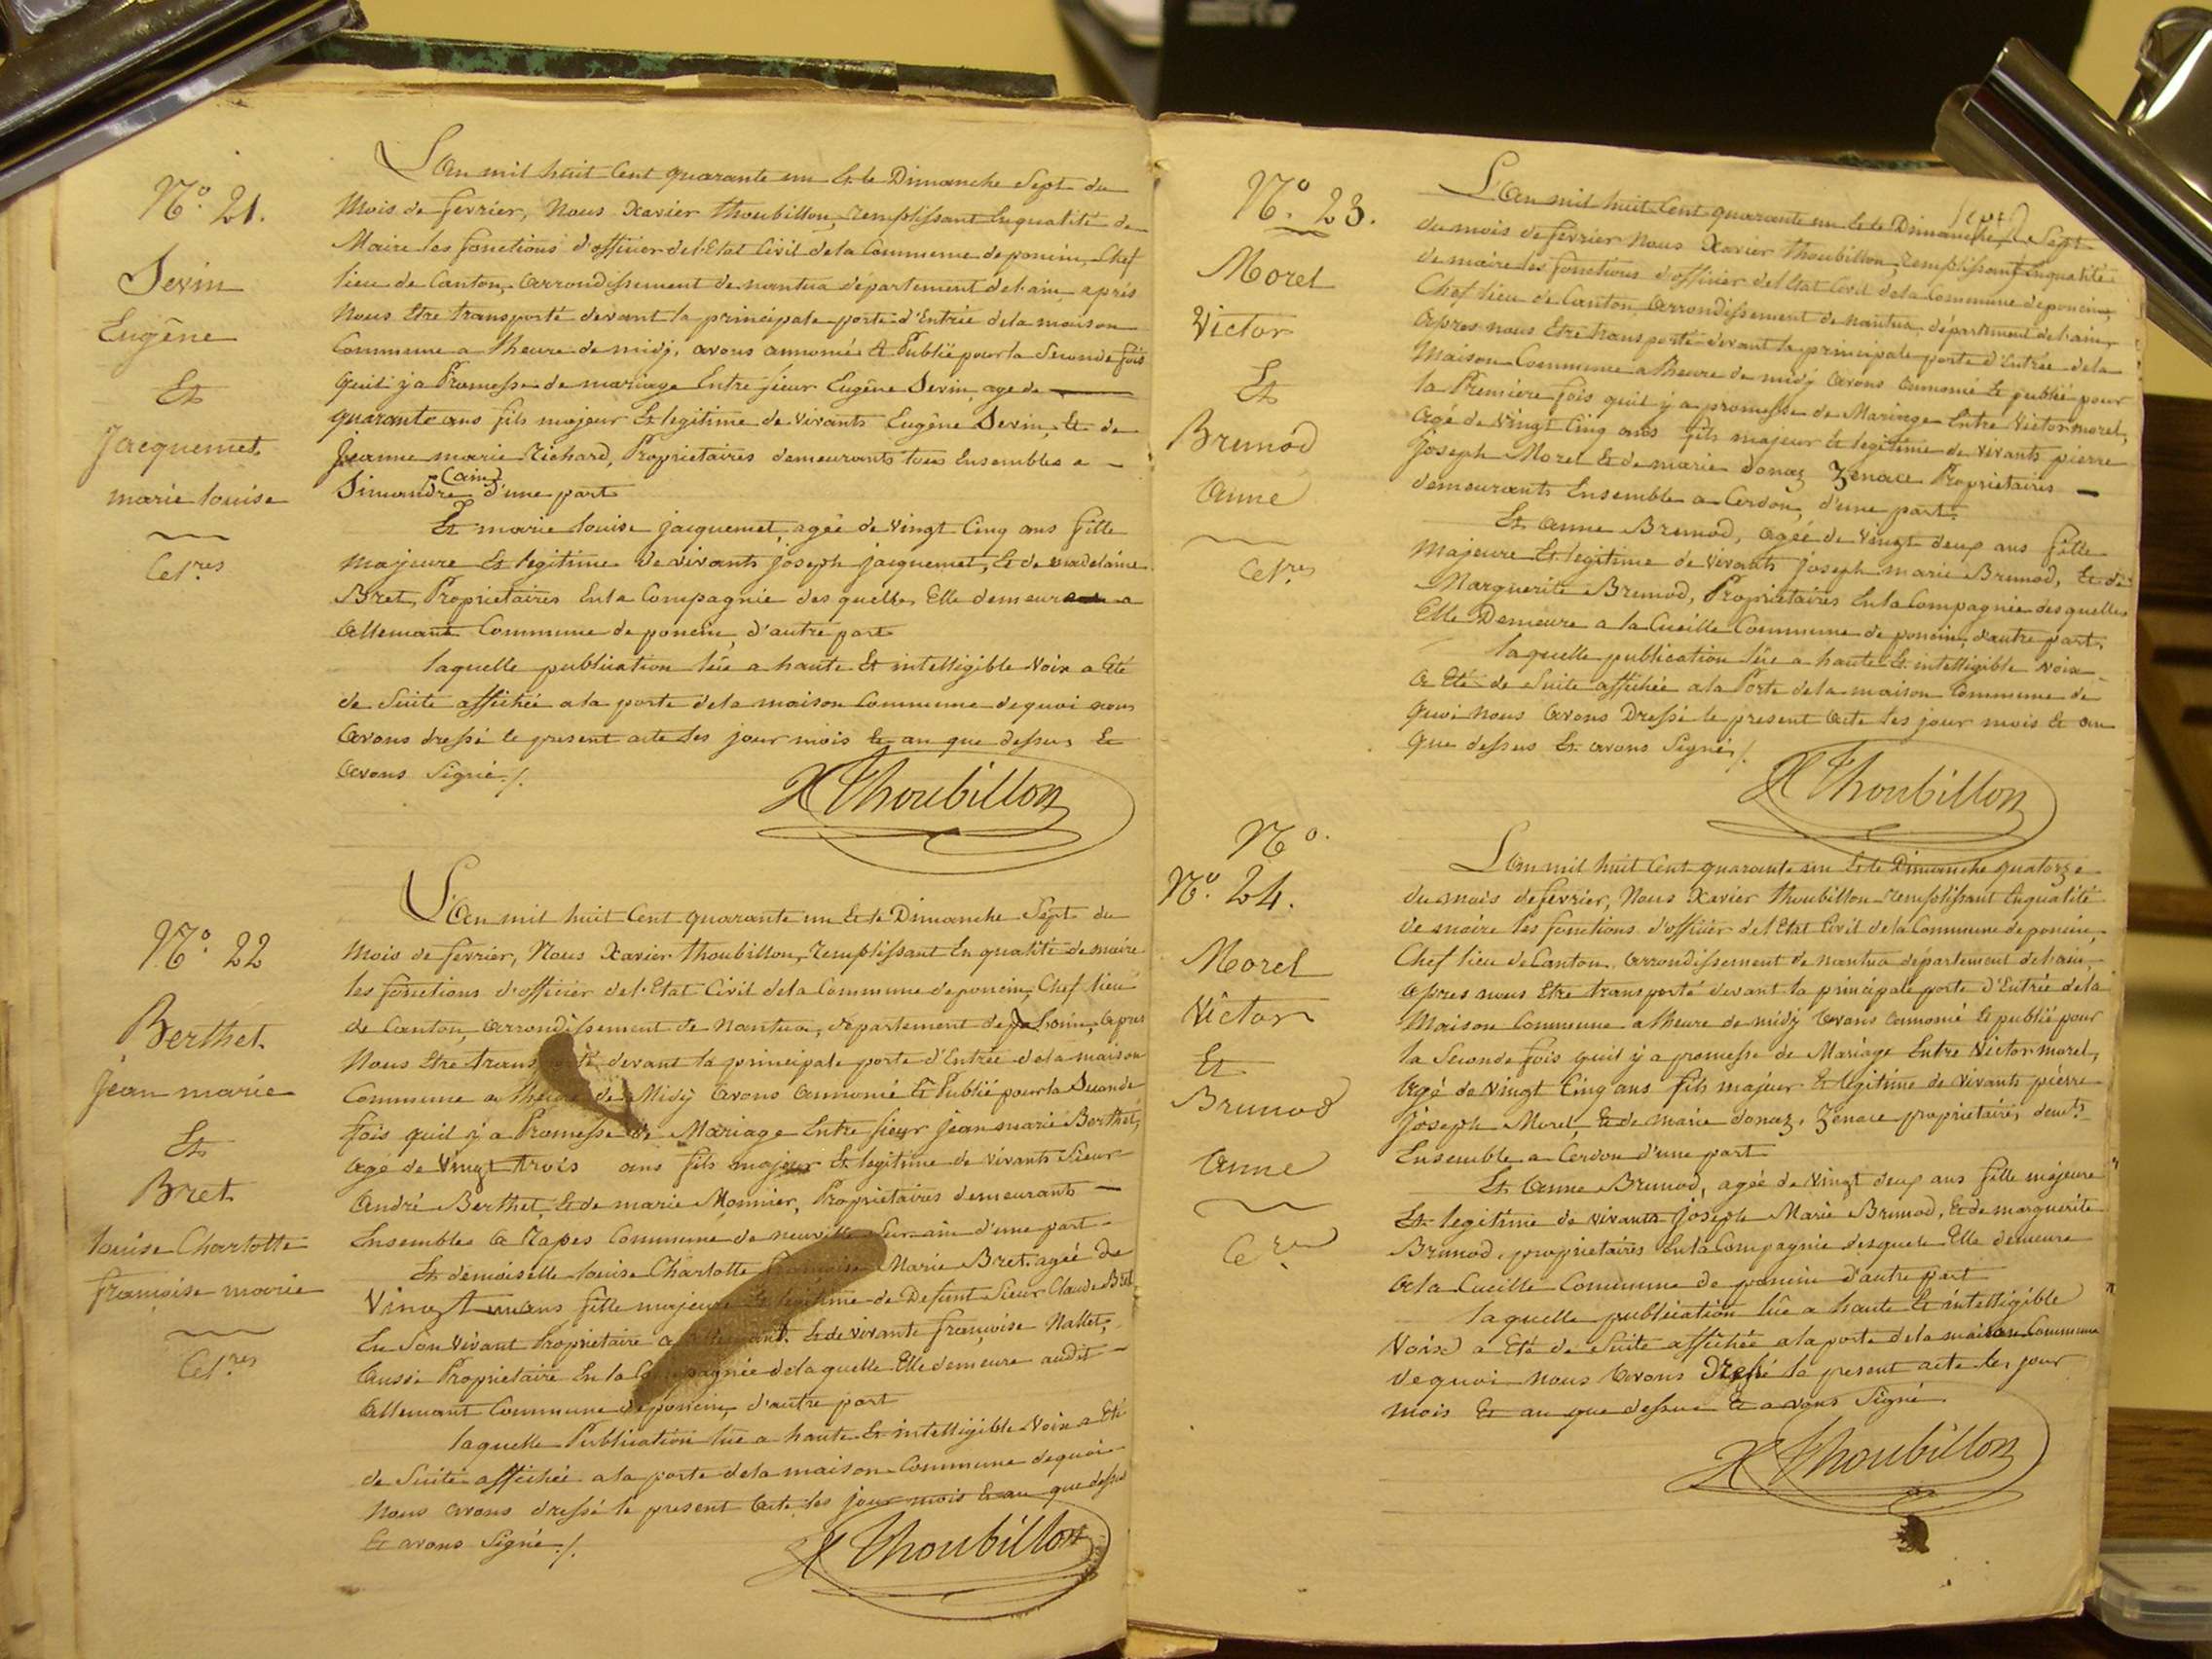 N.o 21.
Sevin
Eugêne
Et
Jacquemet
marie louise
Cel.res
L'an mil huit Cent quarante un Et le Dimanche Sept du
Mois de fevrier, Nous Xavier thoubillon, remplissant En qualité de
Maire les fonctions d'officier de l'Etat Civil de la Commune de poncin, Chef
lieu de Canton, arrondissement de nantua département de l'ain, après
Nous Etre transporté devant la principale porte d'Entrée de la maison
Commune a l'heure de midy, avons annoncé Et Publié pour la Seconde fois
qu'il y a Promesse de mariage Entre sieur Eugêne Sevin, age de
quarante ans fils majeur Et legitime de vivants Eugêne Sevin, Et de
Jeanne marie Richard, Proprietaires demeurants tous Ensembles a
Simandre (ain) d'une part
Et marie louise jacquemet, agée de vingt Cinq ans fille
majeure Et legitime de vivants joseph jacquemet, Et de madelaine
Bret, Proprietaires En la Compagnie des quelles Elle demeure a
allemant Commune de poncin, d'autre part
laquelle publication lûe a haute Et intelligible Voix a Eté
de Suite affichée a la porte de la maison Commune de quoi nous
avons dressé le present acte les jour mois Et an que dessus Et
avons Signé ./.
X Thoubillon
N.o 22
Berthet
jean marie
Et
Bret
louise Charlotte
françoise marie
Cel.res
L'an mil huit Cent quarante un Et le Dimanche Sept du
Mois de fevrier, Nous Xavier thoubillon, remplissant En qualité de maire
les fonctions d'officier de l'Etat Civil de la Commune de poncin, Chef lieu
de Canton, arrondissement de Nantua, département de l'ain, apres
Nous Etre transporté devant la principale porte d'Entrée de la maison
Commune a l'heure de Midy avons annoncé Et Publié pour la Seconde
fois qu'il y a Promesse de Mariage Entre sieur jean marie Berthet,
agé de vingt trois ans fils majeur Et legitime de vivants Sieur
andré Berthet, Et de marie Monnier, Proprietaires demeurants
Ensembles a Rapes Commune de neuville Sur ain d'une part
Et demoiselle louise Charlotte françoise Marie Bret, agée de
Vingt un ans fille majeure Et legitime de Defunt Sieur Claude Bret
En Son Vivant Proprietaire a allemant, Et de vivante françoise Nallet,
aussi Proprietaire En la Compagnie de la quelle Elle demeure audit
allemant Commune de poncin, d'autre part
laquelle Publication lûe a haute Et intelligible Voix a Eté
de Suite affichée a la porte de la maison Commune de quoi
Nous avons dressé le present acte les jour mois Et an que dessus
Et avons Signé ./.
X Thoubillon
N.o 23.
Morel
Victor
Et
Brunod
anne
Cel.res
L'an mil huit Cent quarante un Et le Dimanche Sept
du mois de fevrier Nous Xavier thoubillon, remplissant En qualité
de maire les fonctions d'officier de l'Etat Civil de la Commune de poncin,
Chef lieu de Canton, arrondissement de nantua, département de l'ain,
apres nous Etre transporté devant la principale porte d'Entrée de la
Maison Commune a l'heure de midy avons annoncé Et publié pour
la Premiere fois qu'il y a promesse de Mariage Entre Victor morel,
agé de vingt Cinq ans fils majeur Et legitime de vivants pierre
Joseph Morel Et de marie donaz Zenace Proprietaires
demeurants Ensemble a Cerdon, d'une part.
Et anne Brunod, agée de vingt deux ans fille
majeure Et legitime de vivants joseph marie Brunod, Et de
Marguerite Brunod, Proprietaires En la Compagnie des quelles
Elle Demeure a la Cueille Commune de poncin, d'autre part,
laquelle publication lûe a haute Et intelligible voix
a Eté de Suite affichée a la Porte de la maison Commune de
quoi Nous avons Dressé le present acte les jour mois Et an
que dessus Et avons Signé ./.
X Thoubillon
N.o
N.o 24.
Morel
Victor
Et
Brunod
anne
L'an mil huit Cent quarante un Et le Dimanche quatorze
du mois de fevrier, Nous Xavier thoubillon remplissant En qualité
de maire les fonctions d'officier de l'Etat Civil de la Commune de poncin,
Chef lieu de Canton, arrondissement de nantua département de l'ain,
apres nous Etre transporté devant la principale porte d'Entrée de la
Maison Commune a l'heure de midy avons annoncé Et publié pour
la Seconde fois qu'il y a promesse de Mariage Entre Victor morel,
agé de vingt Cinq ans fils majeur Et legitime de vivants pierre
joseph Morel, Et de marie donaz, Zenace proprietaires dem.ts
Ensemble a Cerdon d'une part
Et anne Brunod, agée de vingt deux ans fille majeure
Et legitime de vivants joseph Marie Brunod, Et de marguerite
Brunod, proprietaires En la Compagnie desquels Elle demeure
a la Cueille Commune de poncin d'autre part
laquelle publication lûe a haute Et intelligible
Voix a Eté de Suite affichée a la porte de la maison Commune
de quoi nous avons Dressé le present acte les jour
mois Et an que dessus Et avons Signé
X Thoubillon